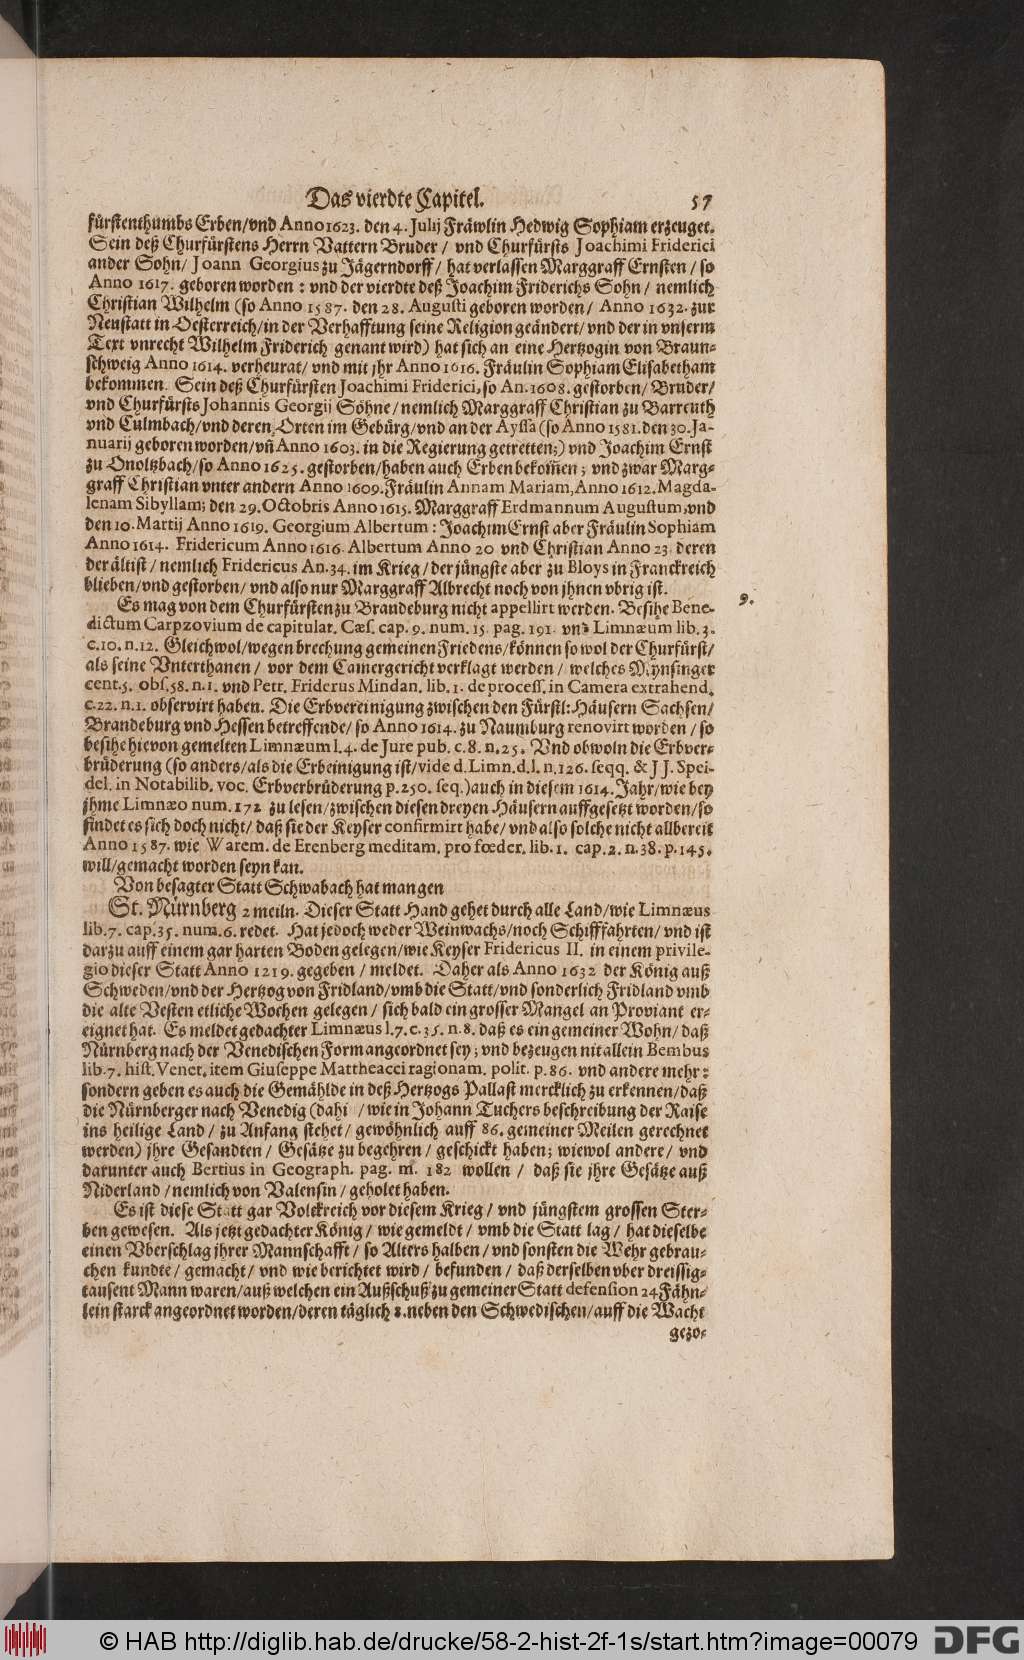 Das vierdte Capitel. 57
fürstenthumbs Erben/vnd Anno 1623. den 4. Julij Fräwlin Hedwig Sophiam erzeuget.
Sein deß Churfürstens Herrn Vattern Bruder / vnd Churfürsts Joachimi Friderici
ander Sohn/ Joann Georgius zu Jägerndorff / hat verlassen Marggraff Ernsten / so
Anno 1617. geboren worden : vnd der vierdte deß Joachim Friderichs Sohn / nemlich
Christian Wilhelm (so Anno 1587. den 28. Augusti geboren worden / Anno 1632. zur
Neustatt in Oesterreich/in der Verhafftung seine Religion geändert/ vnd der in vnserm
Text vnrecht Wilhelm Friderich genant wird) hat sich an eine Hertzogin von Braun-
schweig Anno 1614. verheurat/ vnd mit jhr Anno 1616. Fräulin Sophiam Elisabetham
bekommen. Sein deß Churfürsten Joachimi Friderici, so An. 1608. gestorben/ Bruder/
vnd Churfürsts Johannis Georgij Söhne / nemlich Marggraff Christian zu Barreuth
vnd Culmbach/ vnd deren Orten im Gebürg/ vnd an der Ayssa (so Anno 1581. den 30. Ja-
nuarij geboren worden/ vñ Anno 1603. in die Regierung getretten;) vnd Joachim Ernst
zu Onoltzbach/so Anno 1625. gestorben/haben auch Erben bekom̃en ; vnd zwar Marg-
graff Christian vnter andern Anno 1609. Fräulin Annam Mariam, Anno 1612. Magda-
lenam Sibyllam; den 29. Octobris Anno 1615. Marggraff Erdmannum Augustum, vnd
den 10. Martij Anno 1619. Georgium Albertum : Joachim Ernst aber Fräulin Sophiam
Anno 1614. Fridericum Anno 1616. Albertum Anno 20 vnd Christian Anno 23. deren
der ältist / nemlich Fridericus An. 34. im Krieg / der jüngste aber zu Bloys in Franckreich
blieben/vnd gestorben / vnd also nur Marggraff Albrecht noch von jhnen vbrig ist.
Es mag von dem Churfürsten zu Brandeburg nicht appellirt werden. Besihe Bene- 9.
dictum Carpzovium de capitulat. Cæs. cap. 9. num. 15. pag. 191. vnd Limnæum lib. 3.
c. 10. n. 12. Gleichwol/wegen brechung gemeinen Friedens/können so wol der Churfürst/
als seine Vnterthanen / vor dem Camergericht verklagt werden / welches Mynsinger
cent. 5. obs. 58. n. 1. vnd Petr. Friderus Mindan. lib. 1. de process. in Camera extrahend.
c. 22. n. 1. observirt haben. Die Erbvereinigung zwischen den Fürstl: Häusern Sachsen/
Brandeburg vnd Hessen betreffende/ so Anno 1614. zu Naumburg renovirt worden / so
besihe hievon gemelten Limnæum l. 4. de Jure pub. c. 8. n. 25. Vnd obwoln die Erbver-
brüderung (so anders/als die Erbeinigung ist/vide d. Limn. d. l. n. 126. seqq. & J J. Spei-
del. in Notabilib. voc. Erbverbrüderung p. 250. seq.) auch in diesem 1614. Jahr/wie bey
jhme Limnæo num. 172 zu lesen/zwischen diesen dreyen Häusern auffgesetzt worden/so
findet es sich doch nicht/ daß sie der Keyser confirmirt habe/ vnd also solche nicht allbereit
Anno 1587. wie Warem. de Erenberg meditam. pro fœder. lib. 1. cap. 2. n. 38. p. 145.
will/gemacht worden seyn kan.
Von besagter Statt Schwabach hat man gen
St. Nürnberg 2 meiln. Dieser Statt Hand gehet durch alle Land/wie Limnæus
lib. 7. cap. 35. num. 6. redet. Hat jedoch weder Weinwachs/noch Schifffahrten/ vnd ist
darzu auff einem gar harten Boden gelegen/wie Keyser Fridericus II. in einem privile-
gio dieser Statt Anno 1219. gegeben / meldet. Daher als Anno 1632 der König auß
Schweden/vnd der Hertzog von Fridland/vmb die Statt/vnd sonderlich Fridland vmb
die alte Vesten etliche Wochen gelegen / sich bald ein grosser Mangel an Proviant er-
eignet hat. Es meldet gedachter Limnæus l. 7. c. 35. n. 8. daß es ein gemeiner Wohn/ daß
Nürnberg nach der Venedischen Form angeordnet sey ; vnd bezeugen nit allein Bembus
lib. 7. hist. Venet. item Giuseppe Mattheacci ragionam. polit. p. 86. vnd andere mehr :
sondern geben es auch die Gemählde in deß Hertzogs Pallast mercklich zu erkennen/daß
die Nürnberger nach Venedig (dahi / wie in Johann Tuchers beschreibung der Raise
ins heilige Land / zu Anfang stehet / gewöhnlich auff 86. gemeiner Meilen gerechnet
werden) jhre Gesandten / Gesätze zu begehren / geschickt haben; wiewol andere / vnd
darunter auch Bertius in Geograph. pag. m. 182 wollen / daß sie jhre Gesätze auß
Niderland / nemlich von Valensin / geholet haben.
Es ist diese Statt gar Volckreich vor diesem Krieg / vnd jüngstem grossen Ster-
ben gewesen. Als jetzt gedachter König / wie gemeldt / vmb die Statt lag / hat dieselbe
einen Vberschlag jhrer Mannschafft / so Alters halben / vnd sonsten die Wehr gebrau-
chen kundte / gemacht / vnd wie berichtet wird / befunden / daß derselben vber dreissig-
tausent Mann waren/auß welchen ein Außschuß zu gemeiner Statt defension 24 Fähn-
lein starck angeordnet worden/deren täglich 8. neben den Schwedischen/auff die Wacht
gezo-
© HAB http://diglib.hab.de/drucke/58-2-hist-2f-1s/start.htm?image=00079 DFG